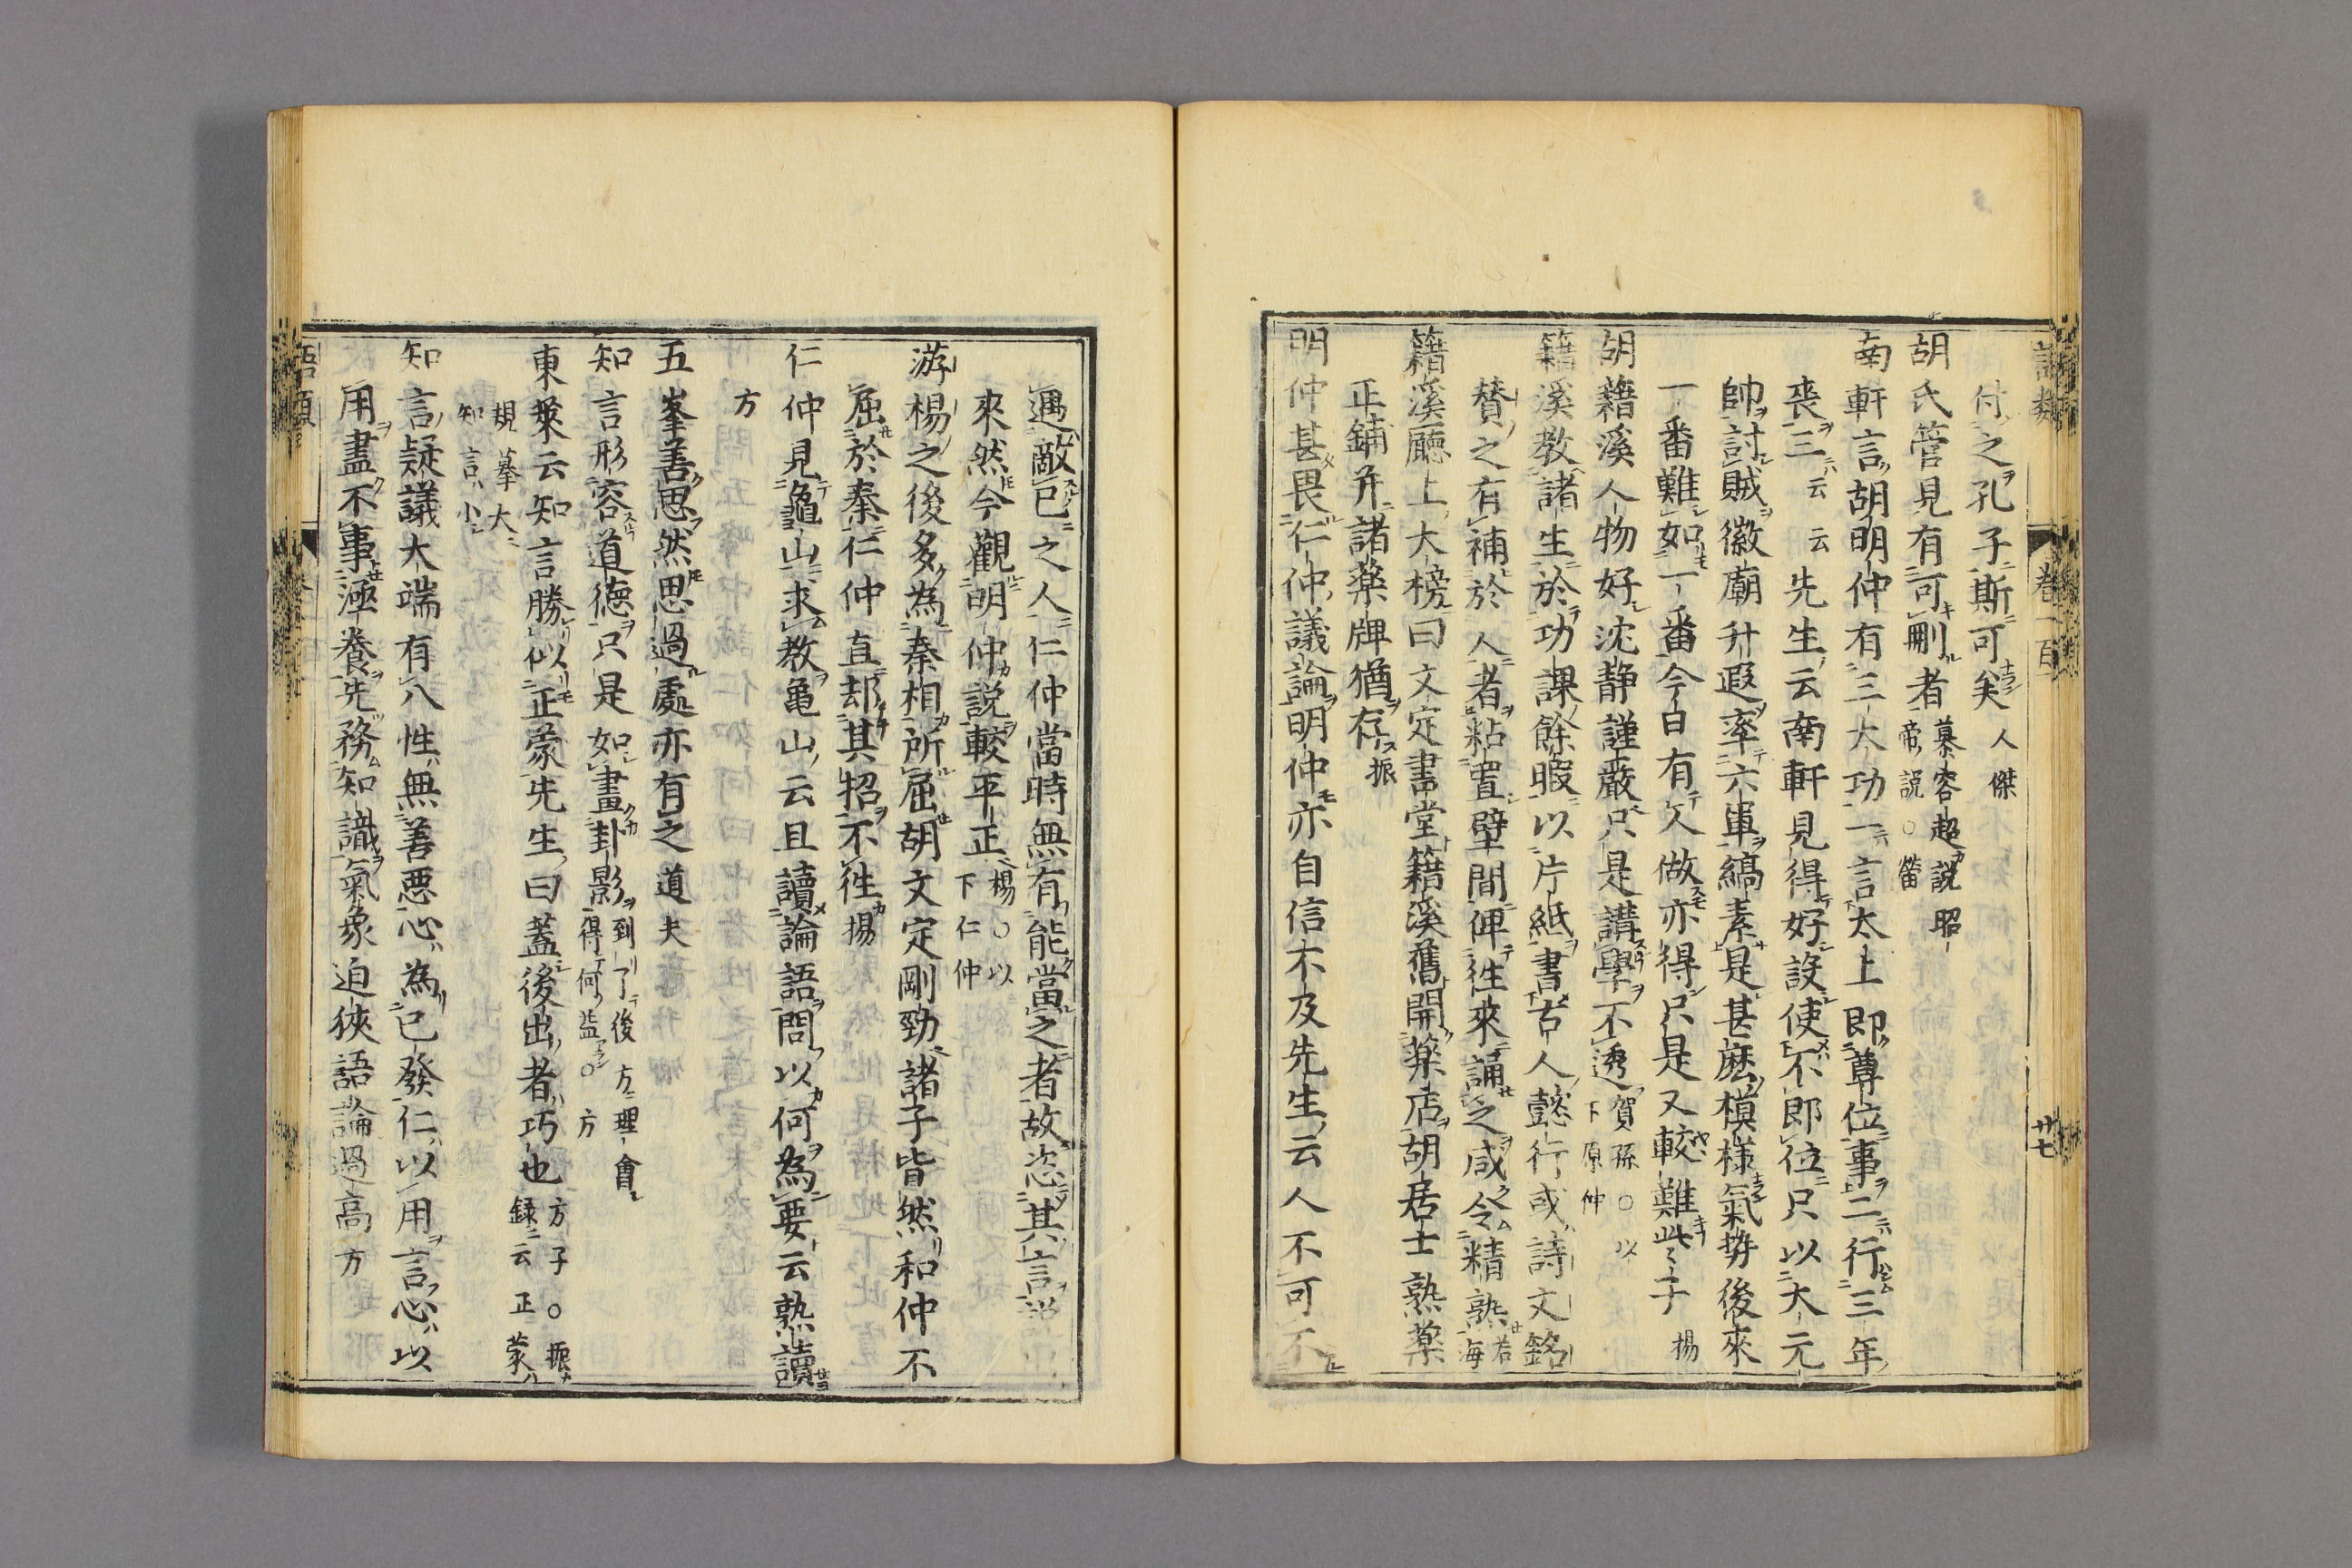 語類
卷一百
廿七
付之孔子斯可矣人傑
胡氏管見有可刪者慕容超說昭
帝說○㽦
南軒言胡明仲有三大功一言太上即尊位事二行三年
喪三云云先生云南軒見得好設使不即位只以大元
帥討賊徽廟升遐率六軍縞素是甚麽模樣氣勢後來
一番難如一番今日有人做亦得只是又較難些子揚
胡籍溪人物好沈静謹嚴只是講學不透賀孫○以
下原仲
籍溪教諸生於功課餘暇以片紙書古人懿行或詩文銘
賛之有補於人者粘置壁間俾徃來誦之咸令精熟若
海
籍溪廳上大榜曰文定書堂籍溪舊開藥店胡居士熟藥
正鋪并諸藥牌猶存振
明仲甚畏仁仲議論明仲亦自信不及先生云人不可不
遇敵已之人仁仲當時無有能當之者故恣其言說
來然今觀明仲說較平正揚○以
下仁仲
游楊之後多為秦相所屈胡文定剛勁諸子皆然和仲不
屈於秦仁仲直却其招不徃揚
仁仲見龜山求教龜山云且讀論語問以何為要云熟讀
方
五峯善思然思過處亦有之道夫
知言形容道德只是如畫卦影到了後方理會
得何益○方
東萊云知言勝似正蒙先生曰蓋後出者巧也方子○振
録云正蒙
規摹大
知言小
知言疑議大端有八性無善惡心為已發仁以用言心以
用盡不事涵養先務知識氣象迫狹語論過高方
語類